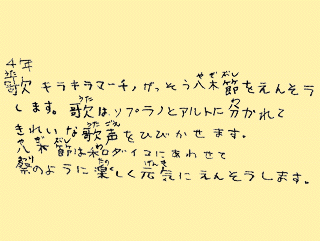 4年
歌 キラキラマーチ、がっそう八木節をえんそう
します。歌は、ソプラノとアルトに分かれて
きれいな歌声をひびかせます。
八木節は和ダイコにあわせて
祭のように楽しく元気にえんそうします。